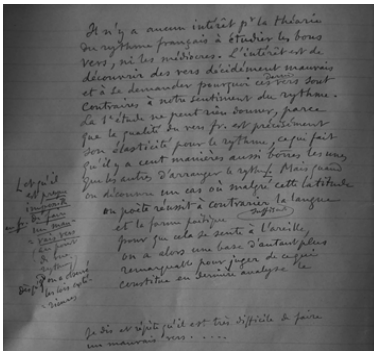 Il n'y a aucun intérêt pr la théorie
du rythme français à étudier les bons
vers, ni les médiocres. L'intérêt est de
découvrir des vers décidément mauvais
et à se demander pourquoi ces vers sont
contraires à notre sentiment du rythme.
La 1e étude ne peut rien donner, parce
que la qualité du vers fr. est précisément
son élasticité pour le rythme, ce qui fait
qu'il y a cent manières aussi bonnes les unes
que les autres d'arranger le rythme. Mais quand
on découvre un cas où malgré cette latitude
un poète réussit à contrarier la langue
et la forme poétique suffist
pour que cela se sente à l'oreille,
on a alors une base d'autant plus
remarquable pour juger de ce qui
constitue en dernière analyse la
Lorsqu'il
est presque
de faire
un mauvais vers
au point
de vue
rythme
on a donné
les lois
Je dis et répète qu'il est très difficile de faire
un mauvais vers. . . . .